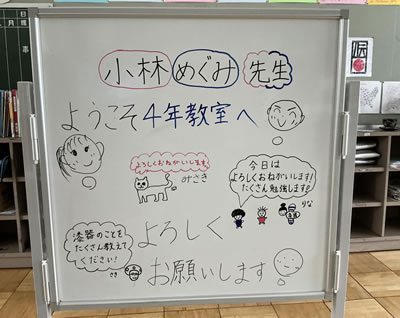 小林 めぐみ 先生
ようこそ4年教室へ
よろしくおねがいします
みさき
今日は
よろしくおねがいします!
たくさん勉強します!
りな
漆器のことを
たくさん教えて
ください!
よろしく
お願いします